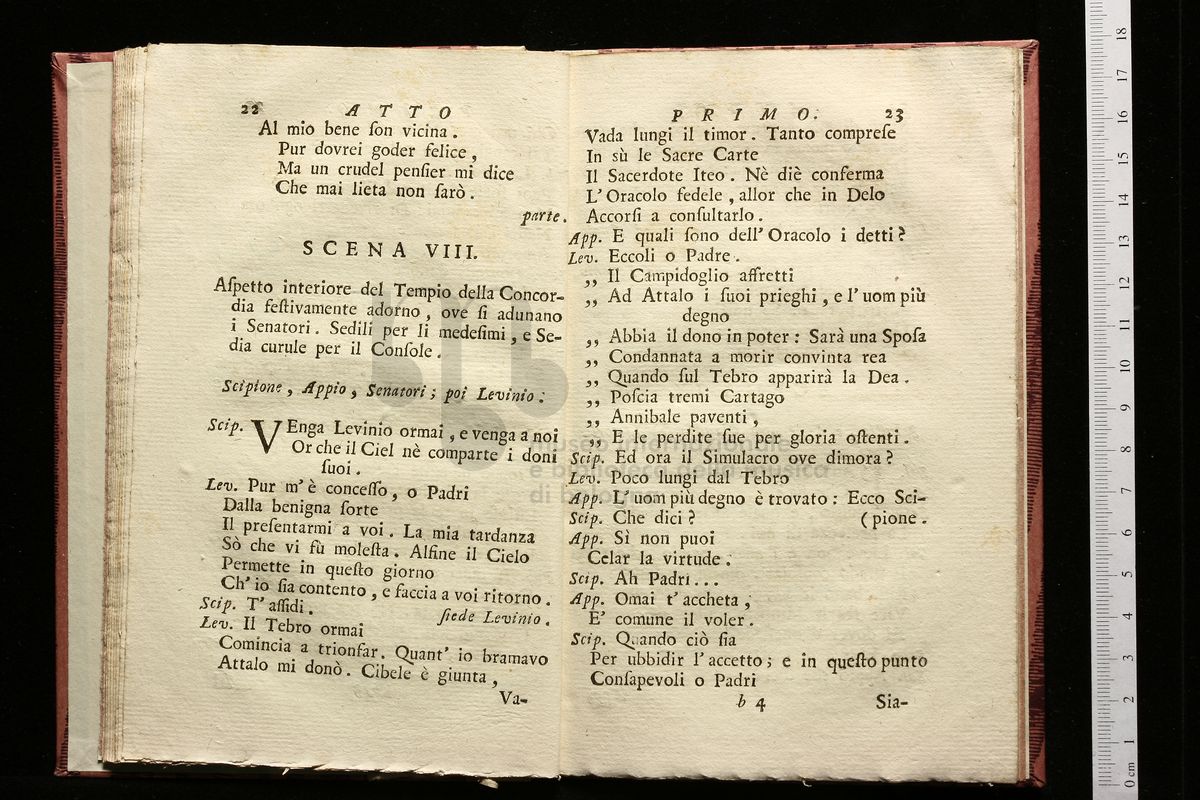 22 ATTO
Al mio bene ſon vicina .
Pur dovrei goder felice ,
Ma un crudel penſier mi dice
Che mai lieta non ſarò .
parte .
SCENA VIII.
Aſpetto interiore del Tempio della Concor-
dia feſtivamente adorno , ove ſi adunano
i Senatori . Sedili per li medeſimi , e Se-
dia curule per il Conſole .
Scipione , Appio , Senatori ; poi Levinio .
Scip. VEnga Levinio ormai , e venga a noi
Or che il Ciel nè comparte i doni
ſuoi .
Lev. Pur m' è conceſſo , o Padri
Dalla benigna ſorte
Il preſentarmi a voi . La mia tardanza
Sò che vi fù moleſta . Alfine il Cielo
Permette in queſto giorno
Ch' io ſia contento , e faccia a voi ritorno .
Scip. T' aſſidi . ſiede Levinio .
Lev. Il Tebro ormai
Comincia a trionfar . Quant' io bramavo
Attalo mi donò . Cibele è giunta ,
Va-
PRIMO. 23
Vada lungi il timor . Tanto compreſe
In sù le Sacre Carte
Il Sacerdote Iteo . Nè diè conferma
L' Oracolo fedele , allor che in Delo
Accorſi a conſultarlo .
App. E quali ſono dell' Oracolo i detti ?
Lev. Eccoli o Padre .
,, Il Campidoglio affretti
,, Ad Attalo i ſuoi prieghi , e l' uom più
degno
,, Abbia il dono in poter : Sarà una Spoſa
,, Condannata a morir convinta rea
,, Quando ſul Tebro apparirà la Dea .
,, Poſcia tremi Cartago
,, Annibale paventi ,
,, E le perdite ſue per gloria oſtenti .
Scip. Ed ora il Simulacro ove dimora ?
Lev. Poco lungi dal Tebro
App. L' uom più degno è trovato : Ecco Sci-
Scip. Che dici ? ( pione .
App. Sì non puoi
Celar la virtude .
Scip. Ah Padri . . .
App. Omai t' accheta ,
E' comune il voler .
Scip. Quando ciò ſia
Per ubbidir l' accetto ; e in queſto punto
Conſapevoli o Padri
b 4 Sia-
0 cm 1 2 3 4 5 6 7 8 9 10 11 12 13 14 15 16 17 18